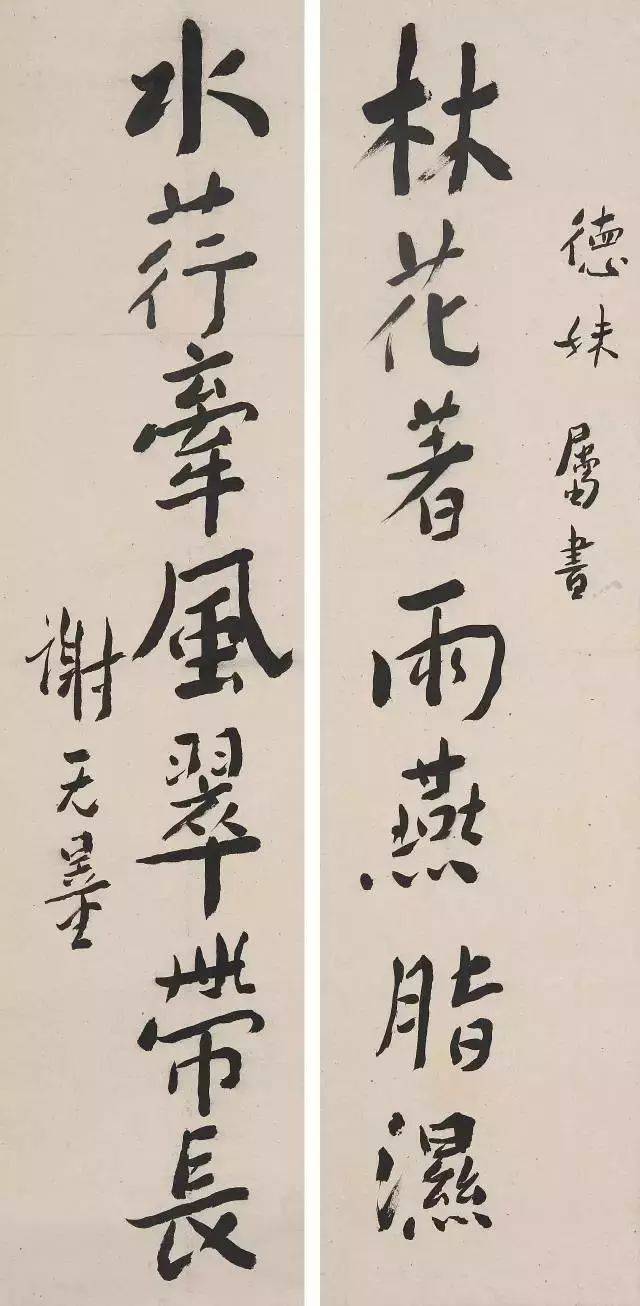 德妹 屬書
林花著雨燕脂濕
水荇牽風翠帶長
謝无量